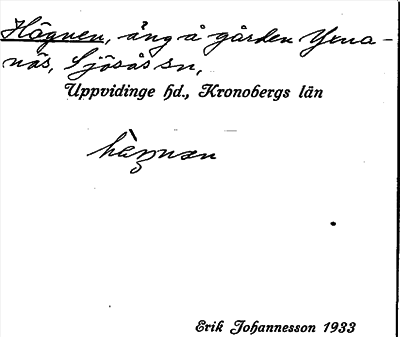 Högnen, äng å gården Yxna-
näs, Sjösås sn,
Uppvidinge hd., Kronobergs län
Erik Johannesson 1933